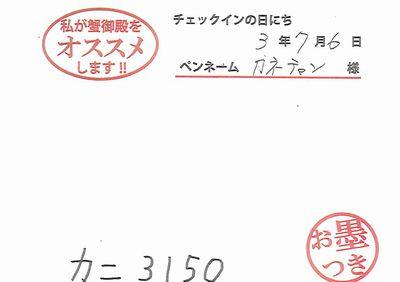 私が蟹御殿を
オススメ
します!!
チェックインの日にち
3年7月6日
ペンネーム カネチャン 様
カニ 3150
お墨
つき